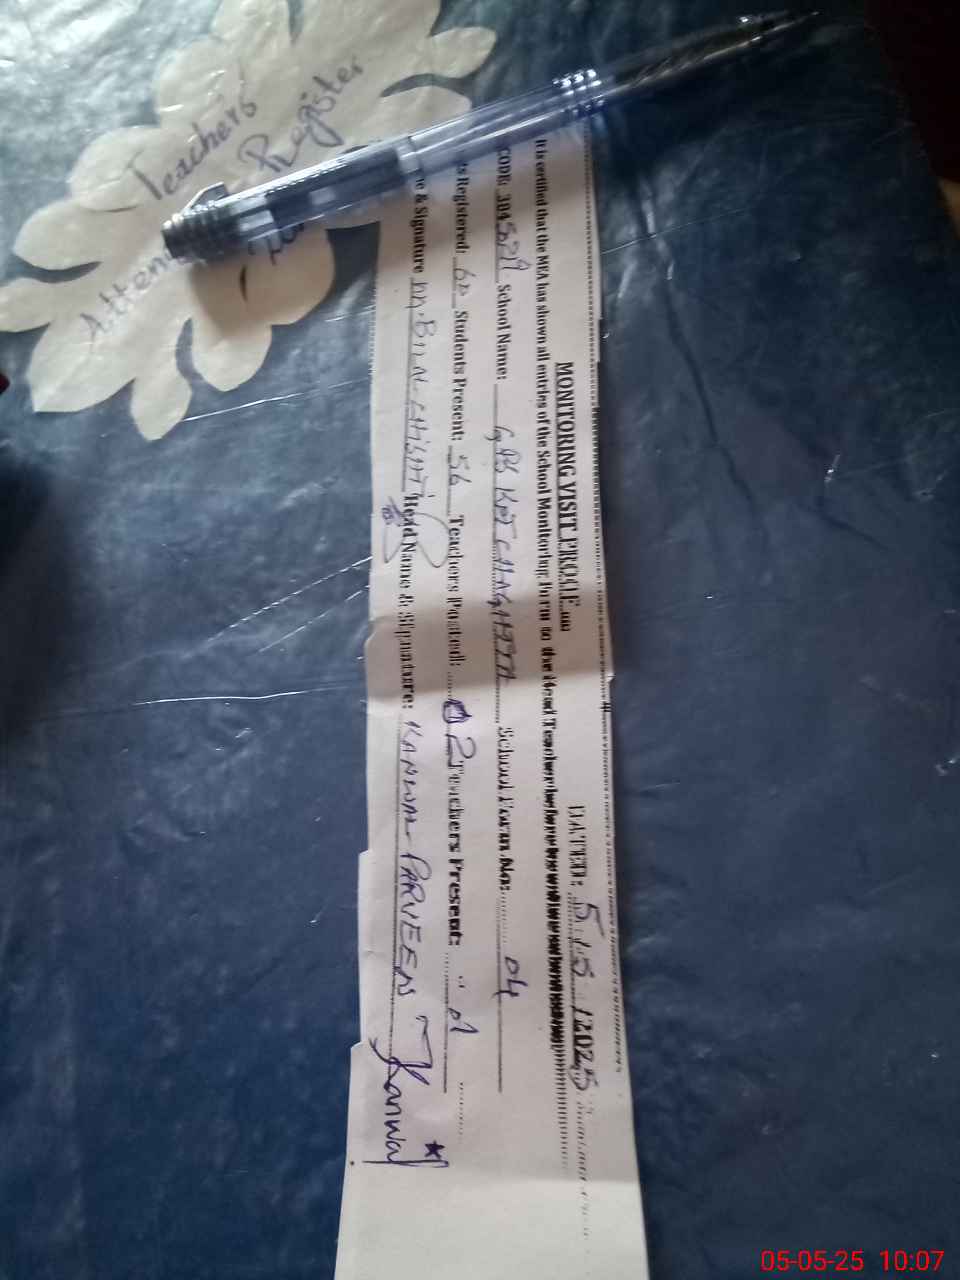 Teachers
Attend
Register
MONITORING VISIT PROOF
DATED: 5/5/2025
It is certified that the MEA has shown all entries of the School Monitoring Form to the Head Teacher before
CODE: School Name: GPS KOT School Form No: 04
Registered: 60 Students Present: 56 Teachers Posted: 02 Teachers Present:
& Signature Head Name & Signature: KANWAL PARVEEN Kanwal
05-05-25 10:07